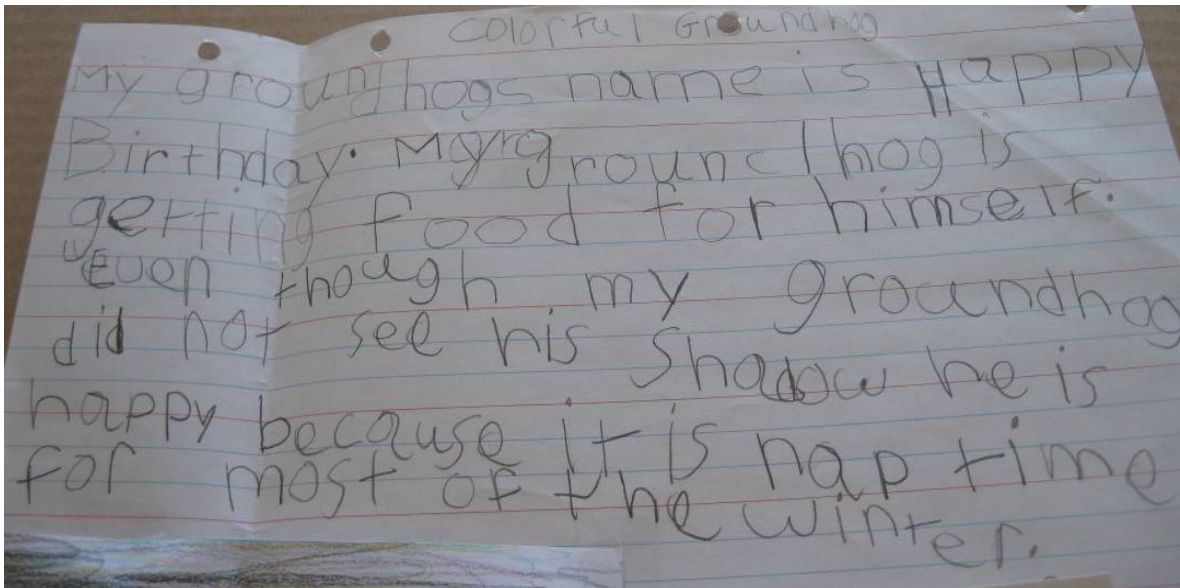 Colorful Groundhog
My groundhogs name is Happy
Birthday. My groundhog is
getting food for himself.
Even though my groundhog
did not see his shadow he is
happy because it is nap time
for most of the winter.